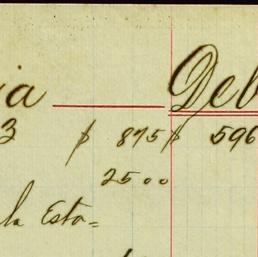 ia Deb
3 $ 875 $ 596
2500
la Esta=